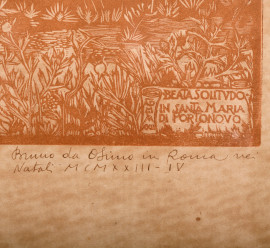 BEATA SOLITVDO
IN SANTA MARIA
DI PORTONOVO
Bruno da Osimo in Roma nei
Natali MCMXXIII-IV